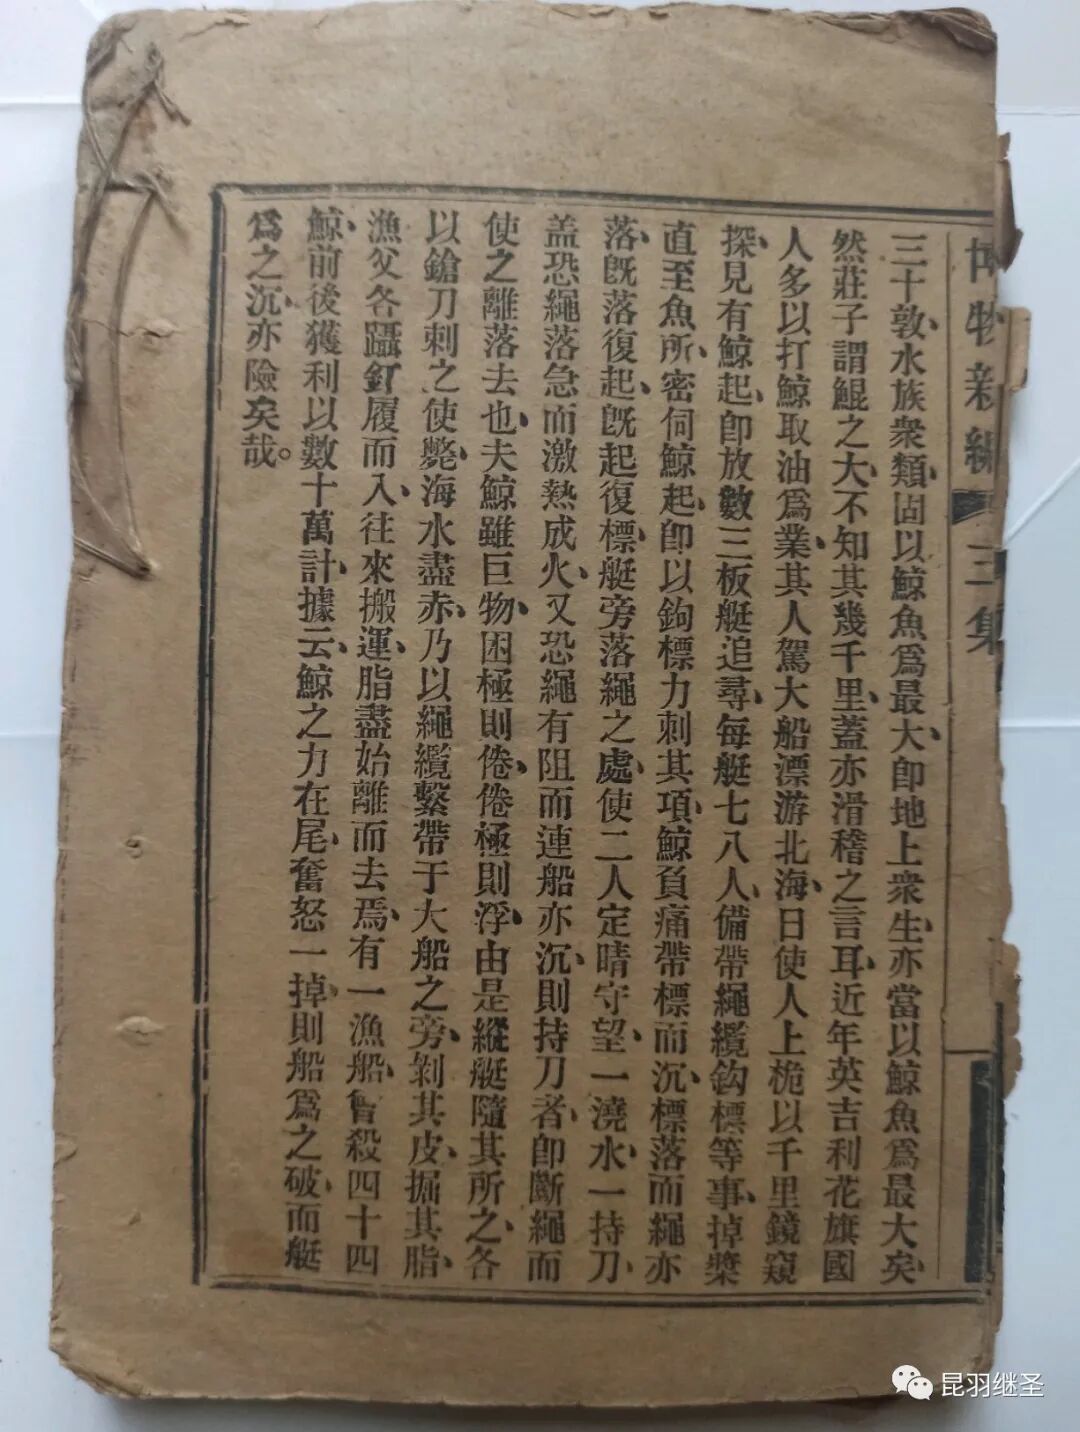 博物新編 三集
三十敦、水族衆類、固以鯨魚爲最大、即地上衆生、亦當以鯨魚爲最大矣、
然莊子謂鯤之大、不知其幾千里、蓋亦滑稽之言耳、近年英吉利花旗國
人多以打鯨取油爲業、其人駕大船漂游北海、日使人上桅以千里鏡窺
探、見有鯨起、即放數三板艇追尋、每艇七八人、備帶繩纜鈎標等事、掉槳
直至魚所、密伺鯨起、即以鉤標力刺其項、鯨負痛帶標而沉、標落而繩亦
落、旣落復起、旣起復標、艇旁落繩之處、使二人定晴守望、一澆水、一持刀、
盖恐繩落急而激熱成火、又恐繩有阻而連船亦沉、則持刀者、即斷繩而
使之離落去也、夫鯨雖巨物、困極則倦、倦極則浮、由是縱艇隨其所之、各
以鎗刀刺之使斃、海水盡赤、乃以繩纜繫帶于大船之旁、剝其皮、掘其脂、
漁父各躡釘履而入、往來搬運、脂盡始離而去焉、有一漁船、曾殺四十四
鯨、前後獲利以數十萬計、據云、鯨之力在尾、奮怒一掉、則船爲之破、而艇
爲之沉、亦險矣哉。
昆羽继圣